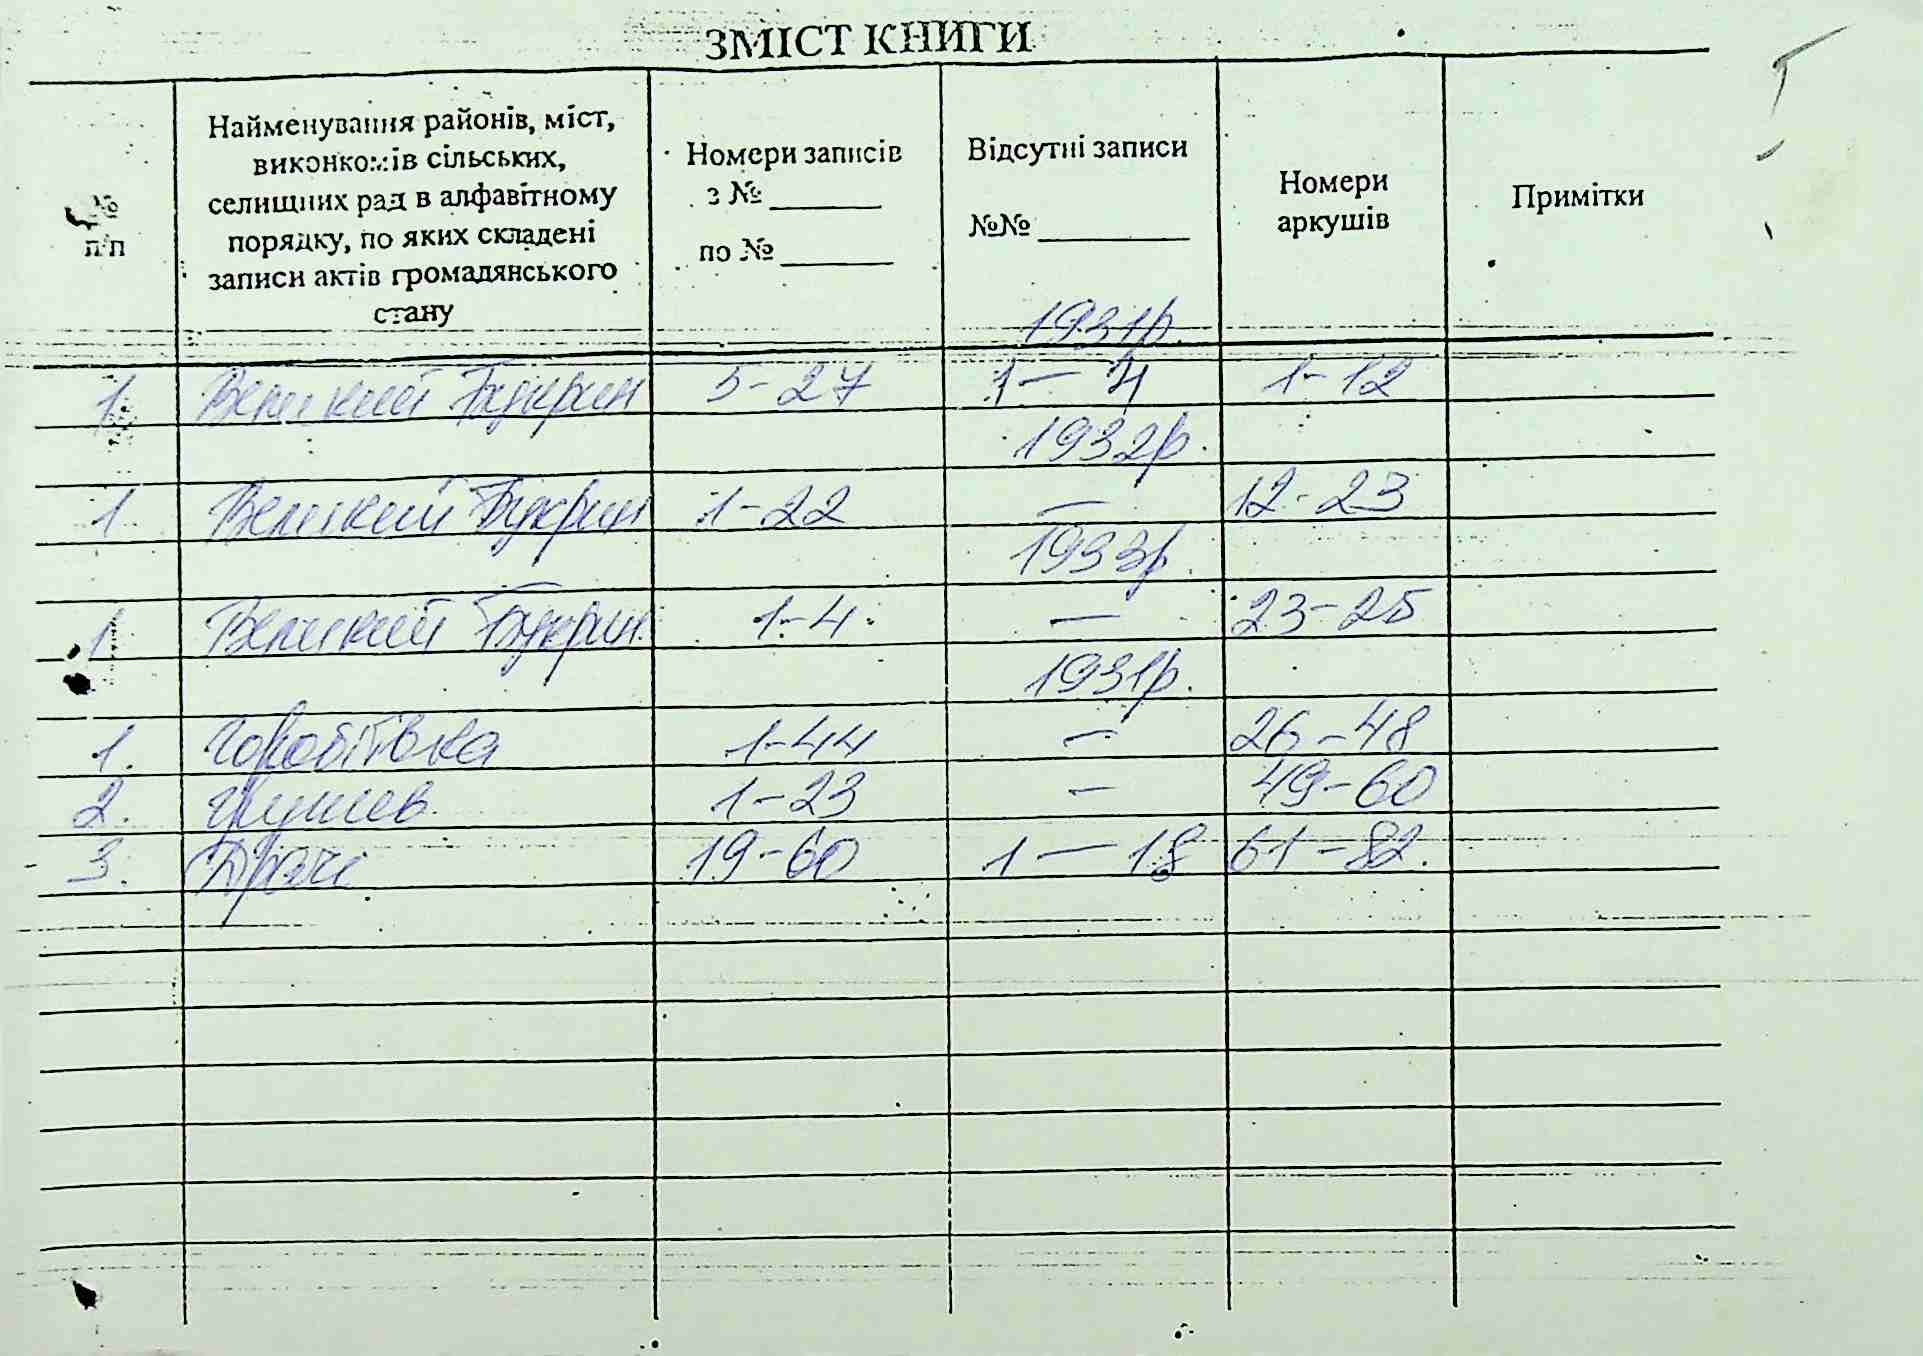 ЗМІСТ КНИГИ
№ п/п
Найменування районів, міст,
виконкомів сільських,
селищних рад в алфавітному
порядку, по яких складені
записи актів громадянського
стану
Номери записів
з № ______
по № ______
Відсутні записи
№№ ________
Номери
аркушів
Примітки
1931р.
1. Великий Букрин 5-27 1 — 4 1-12
1932р.
1 Великий Букрин 1-22 — 12-23
1933р.
1. Великий Букрин 1-4 — 23-25
1931р.
1. Горобіївка 1-44 — 26-48
2. Грушев 1-23 — 49-60
3. Драчі 19-60 1 — 18 61-82.